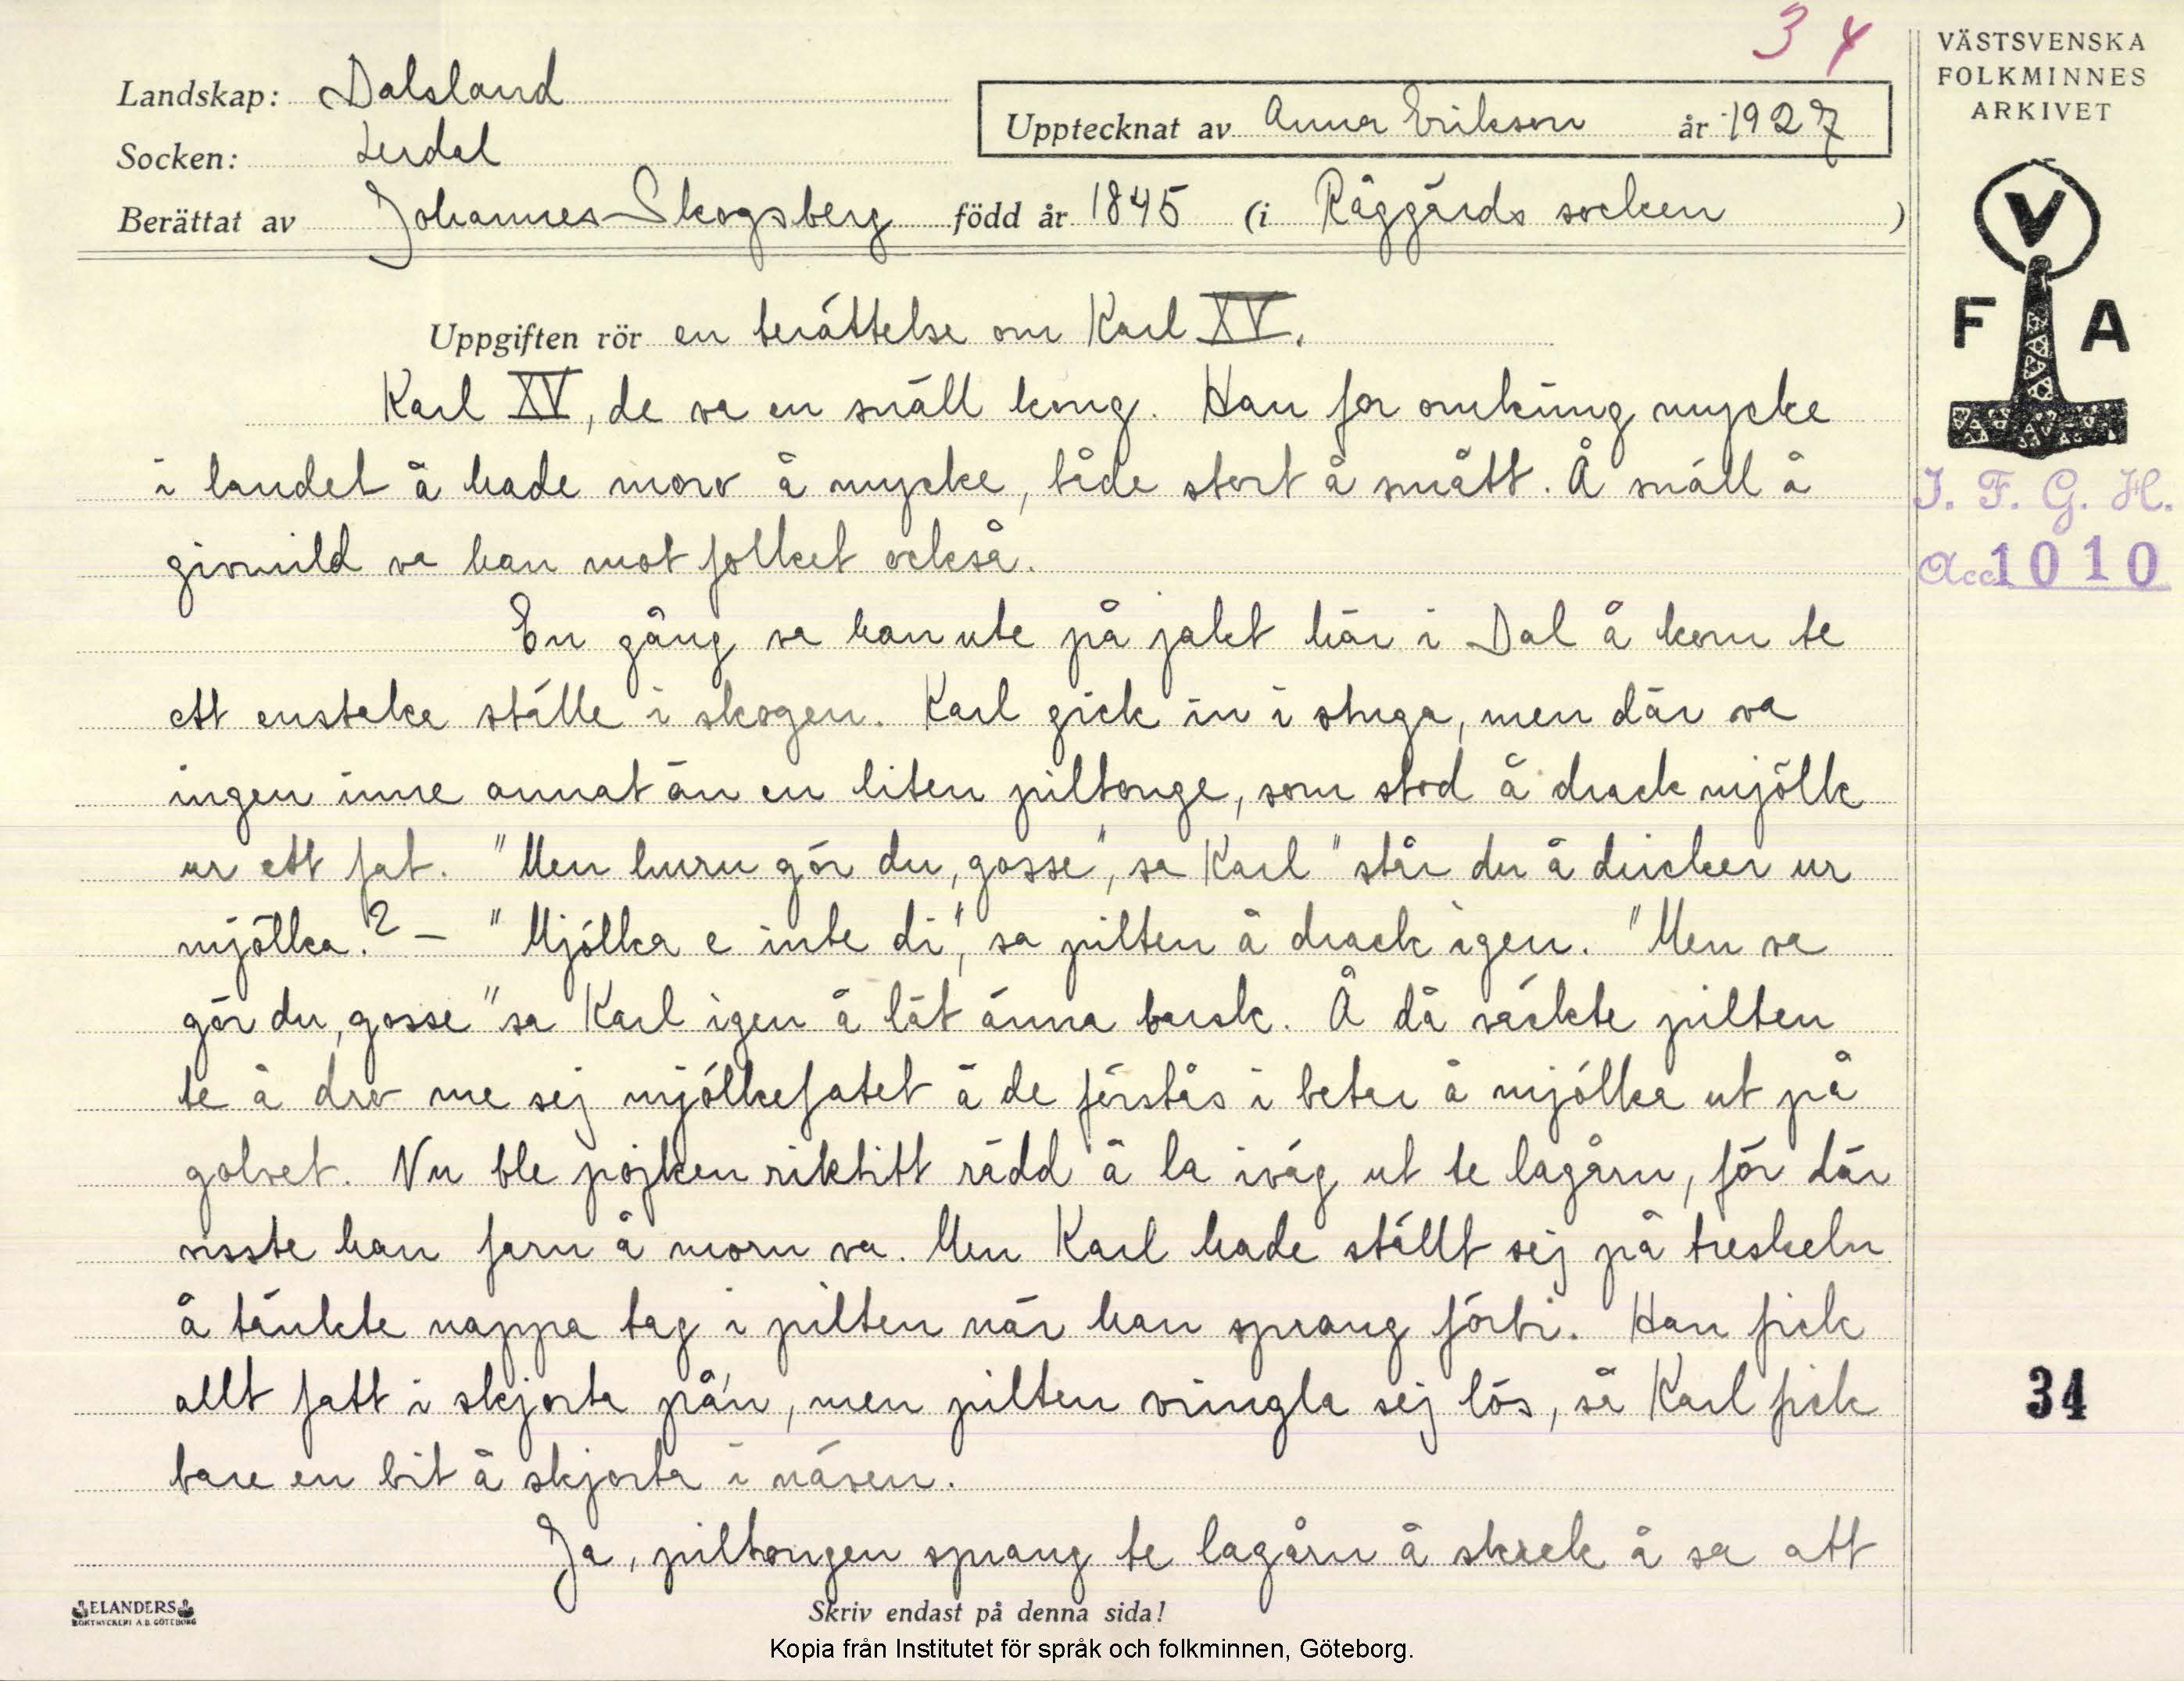 34
VÄSTSVENSKA
FOLKMINNES
ARKIVET
Landskap: Dalsland
Upptecknat av Anna Erikson år 1927
Socken: Lerdal
Berättat av Johannes Skogsberg född år 1845 (i Råggärds socken )
V
F A
Uppgiften rör en berättelse om Karl XV.
Karl XV, de va en snäll kong. Han for omkring mycke
i landet å hade morv å mycke, både stort å smått. Å snäll å
givmild va han mot folket också.
I. F. G. H.
Acc 1010
En gång va han ute på jakt här i Dal å kom te
ett enstaka ställe i skogen. Karl gick in i stuga, men där va
ingen inne annat än en liten piltonge, som stod å drack mjölk
ur ett fat. "Men huru gör du, gosse", sa Karl "står du å dricker ur
mjölka? – "Mjölka e inte di", sa pilten å drack igen. "Men va
gör du, gosse" sa Karl igen å lät änna barsk. Å då räckte pilten
te å drov me sej mjölkefatet å de förstås i betar å mjölka ut på
golvet. Nu ble pojken riktitt rädd å la iväg ut te lagårn, för där
visste han farn å morn va. Men Karl hade ställt sej på treskeln
å tänkte nappa tag i pilten när han sprang förbi. Han fick
allt fatt i skjorta på'n, men pilten vringla sej lös, så Karl fick
bare en bit å skjorta i näven.
34
Ja, piltongen sprang te lagårn å skrek å sa att
ELANDERS
BOKTRYCKERI A.B. GÖTEBORG
Skriv endast på denna sida!
Kopia från Institutet för språk och folkminnen, Göteborg.